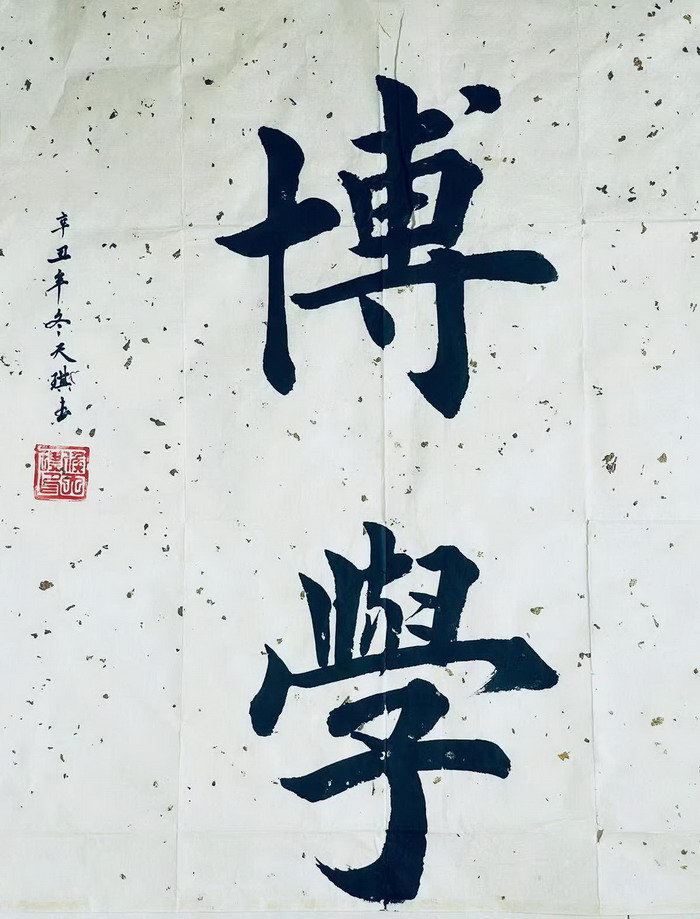 博學
辛丑年冬天琪書